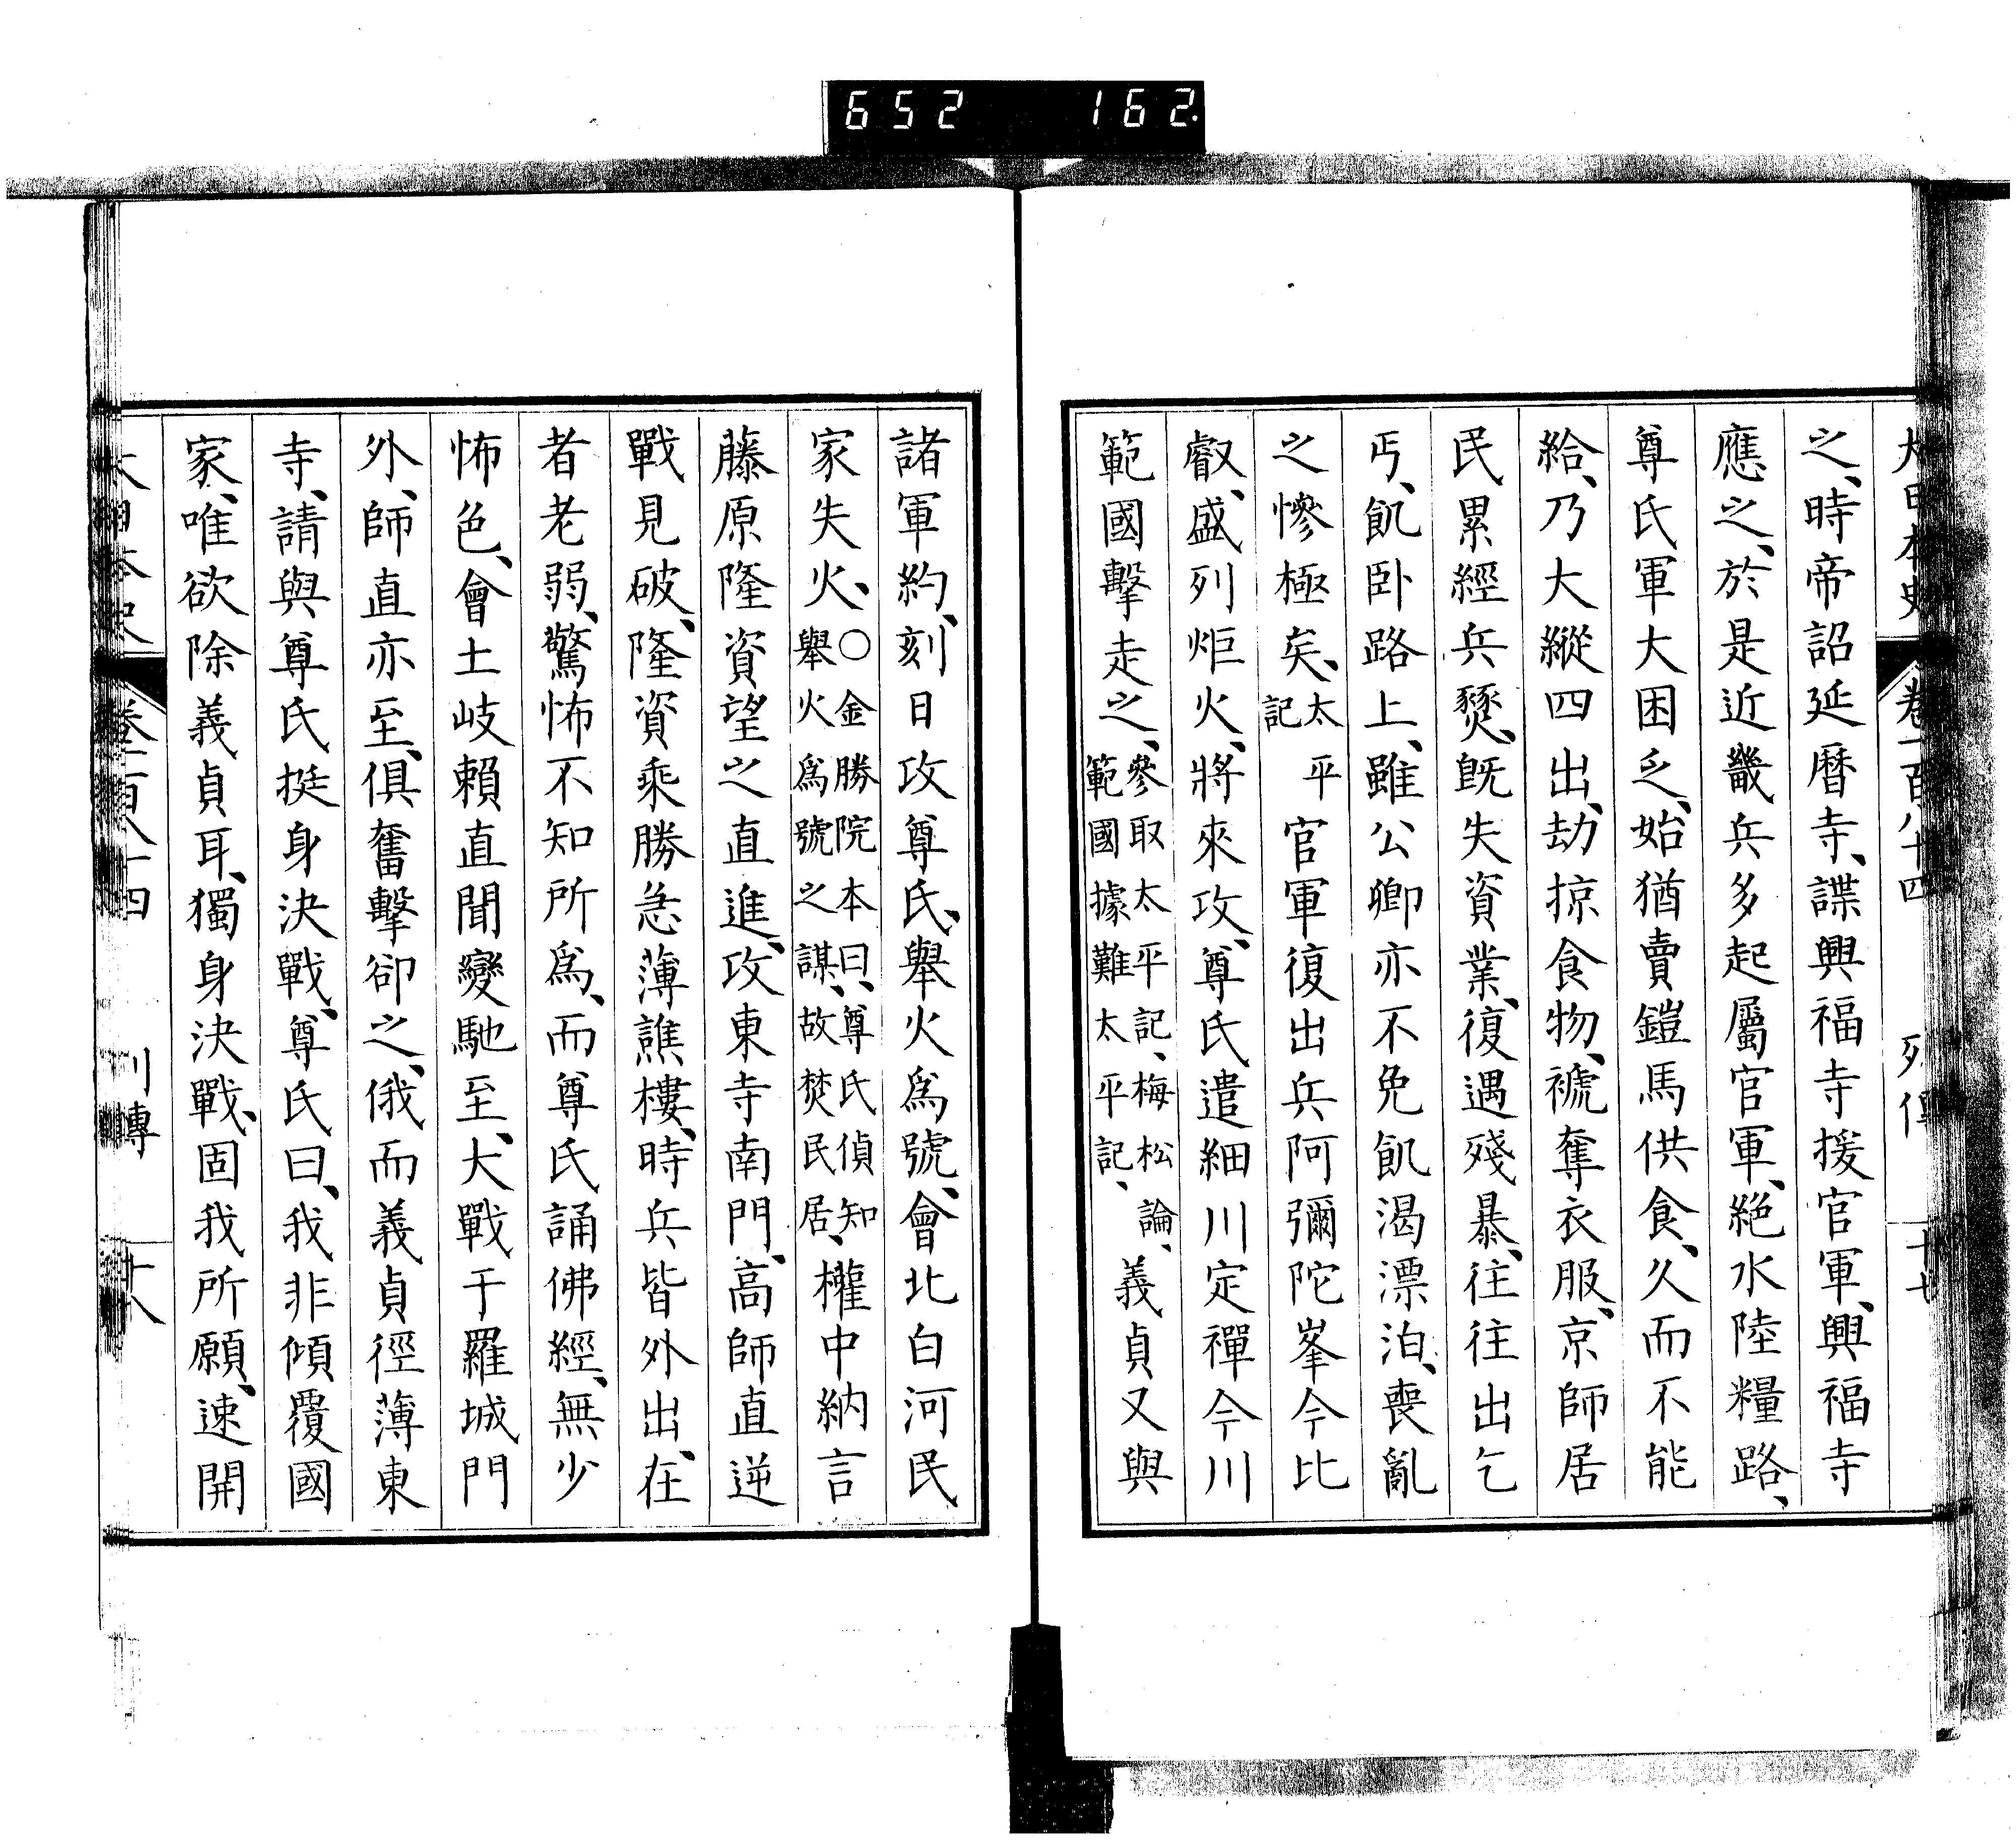 652 162.
大日本史 卷一百八十四 列傳 十七
之、時帝詔延曆寺、諜興福寺援官軍、興福寺
應之、於是近畿兵多起屬官軍、絕水陸糧路、
尊氏軍大困乏、始猶賣鎧馬供食、久而不能
給、乃大縱四出、劫掠食物、褫奪衣服、京師居
民累經兵燹、既失資業、復遇殘暴、往往出乞
丐、飢臥路上、雖公卿亦不免飢渴漂泊、喪亂
之慘極矣、太平記 官軍復出兵阿彌陀峯今比
叡、盛列炬火、將來攻、尊氏遣細川定禪今川
範國擊走之、參取太平記、梅松論、範國據難太平記、義貞又與
諸軍約、刻日攻尊氏、舉火爲號、會北白河民
家失火、〇金勝院本曰、尊氏偵知舉火爲號之謀、故焚民居、權中納言
藤原隆資望之直進、攻東寺南門、高師直逆
戰見破、隆資乘勝急薄譙樓、時兵皆外出、在
者老弱、驚怖不知所爲、而尊氏誦佛經、無少
怖色、會土岐賴直聞變馳至、大戰于羅城門
外、師直亦至、俱奮擊卻之、俄而義貞徑薄東
寺、請與尊氏挺身決戰、尊氏曰、我非傾覆國
家、唯欲除義貞耳、獨身決戰、固我所願、速開
大日本史 卷一百八十四 列傳 十八